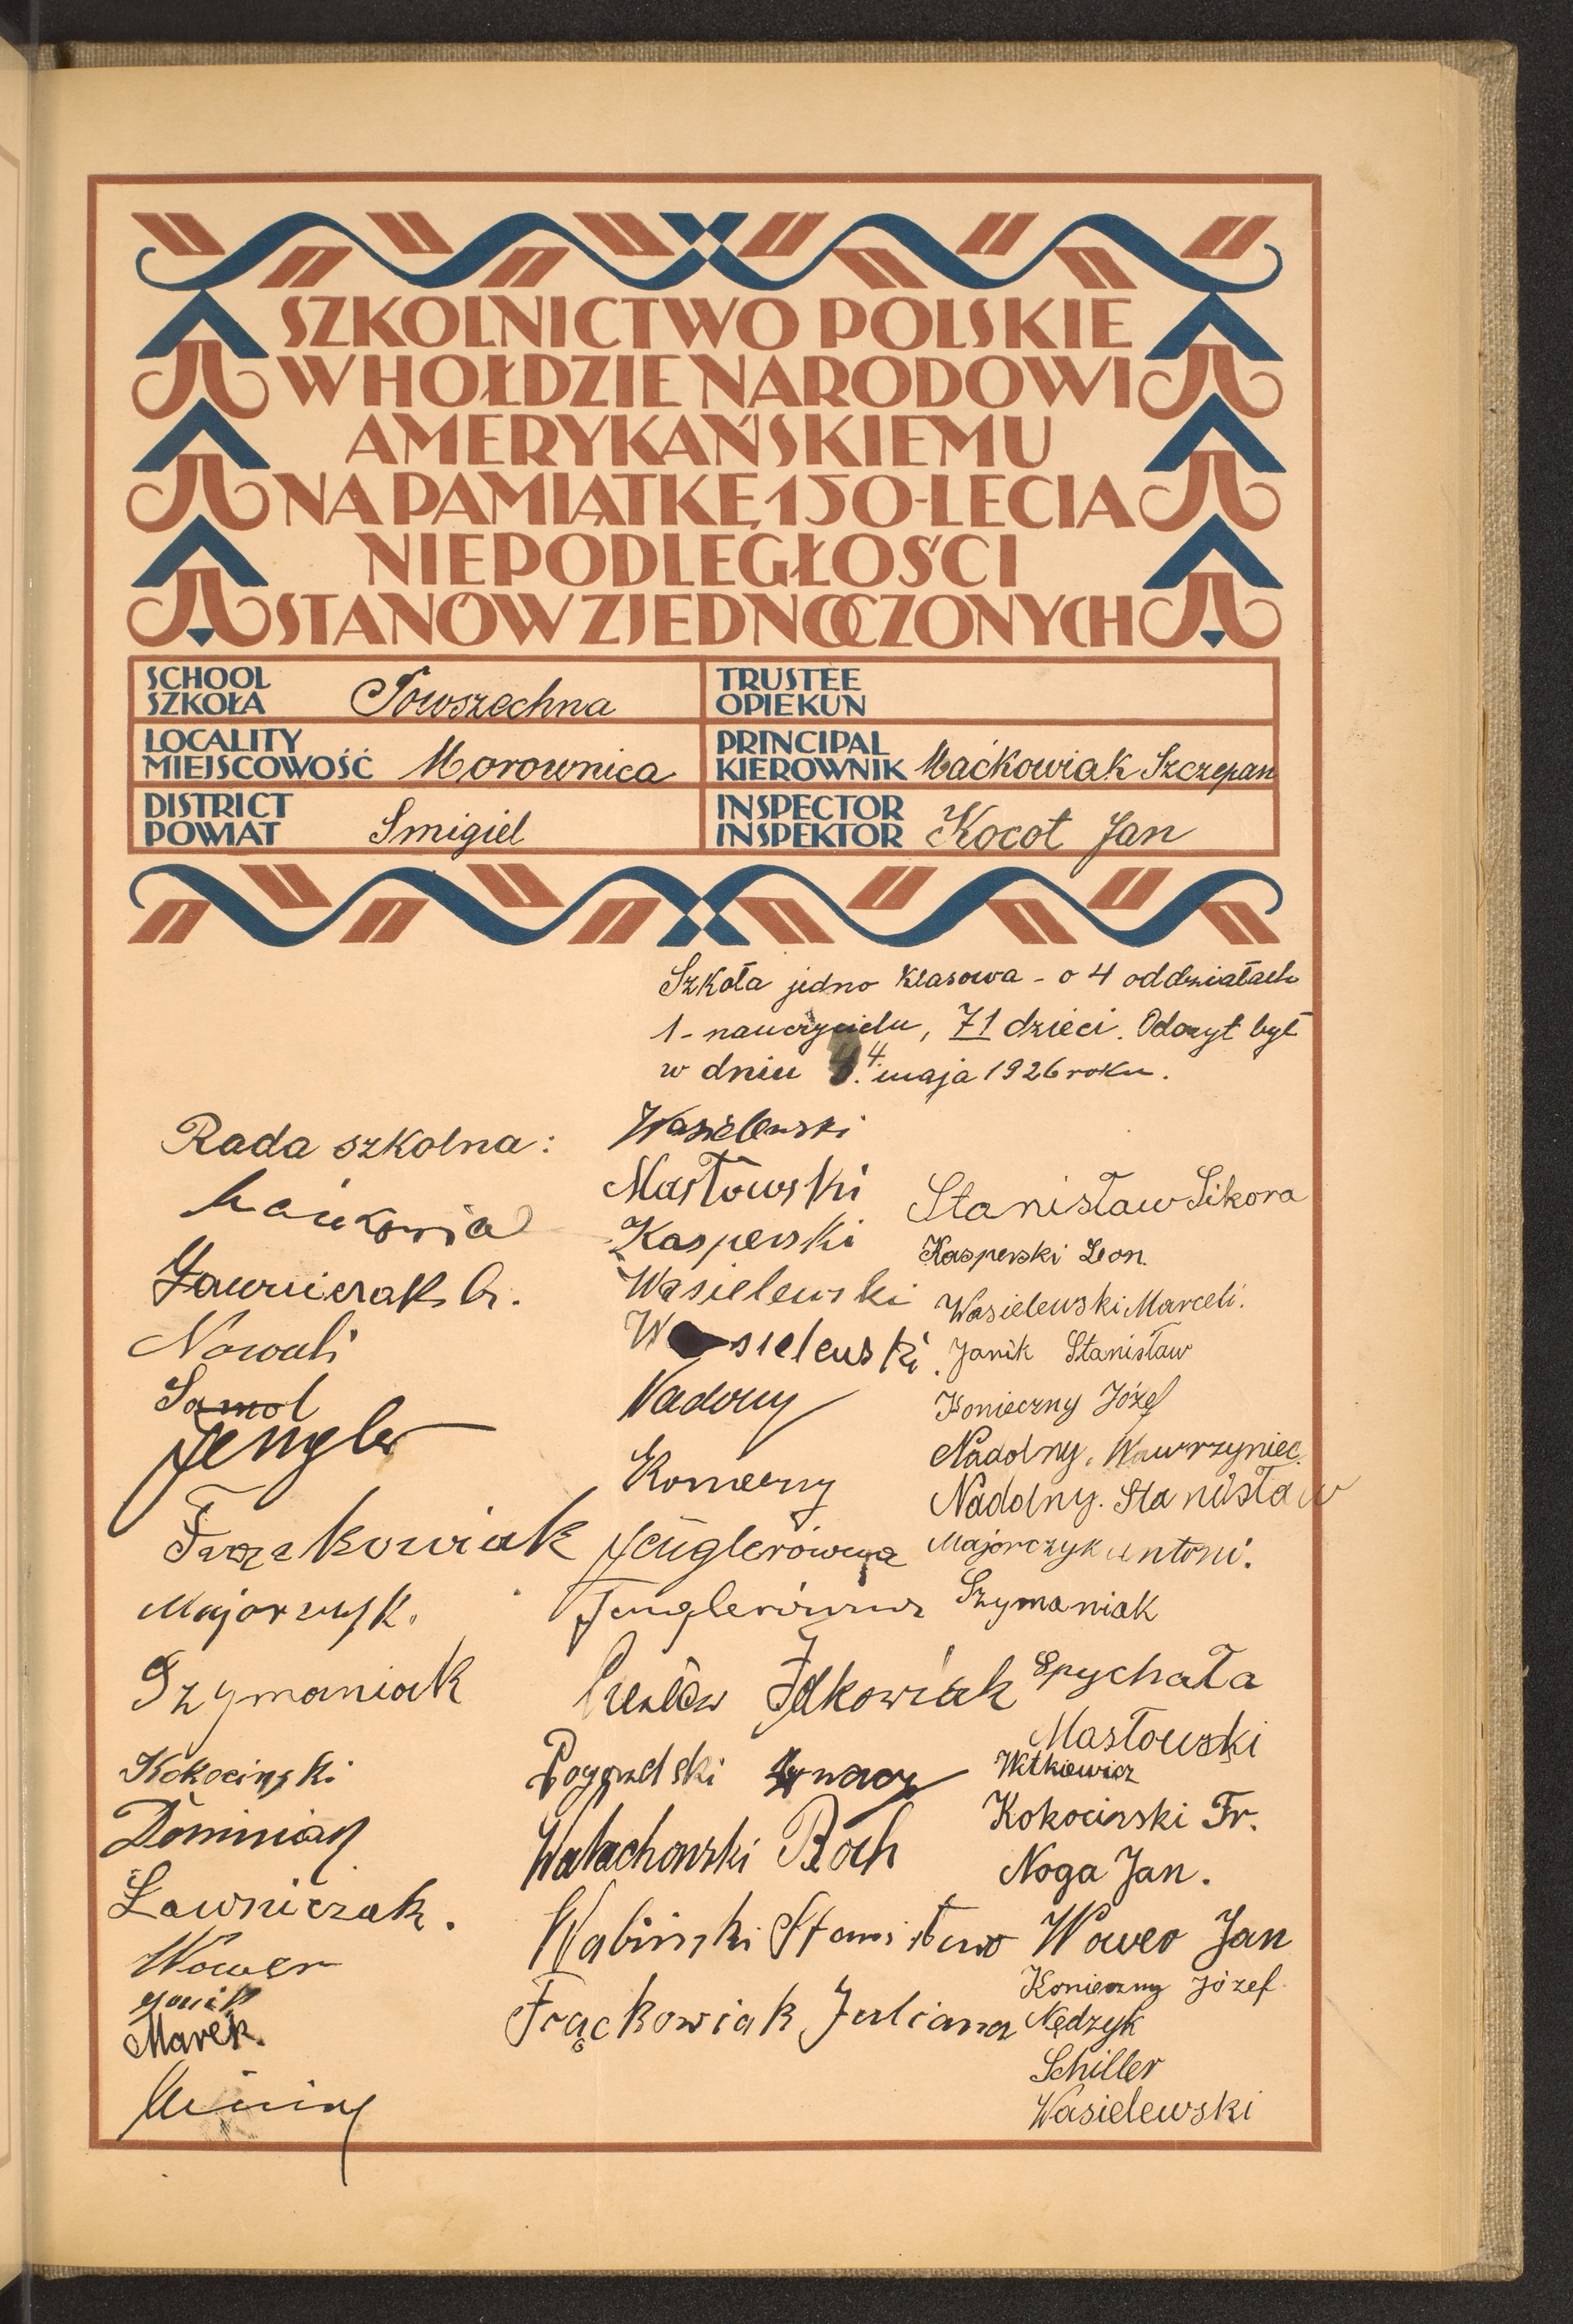 SZKOLNICTWO POLSKIE
W HOŁDZIE NARODOWI
AMERYKAŃSKIEMU
NA PAMIĄTKĘ 150-LECIA
NIEPODLEGŁOŚCI
STANÓW ZJEDNOCZONYCH
SCHOOL
SZKOŁA Powszechna
TRUSTEE
OPIEKUN
LOCALITY
MIEJSCOWOŚĆ Morownica
PRINCIPAL
KIEROWNIK Maćkowiak Szczepan
DISTRICT
POWIAT Smigiel
INSPECTOR
INSPEKTOR Kocot Jan
Szkoła jedno klasowa - o 4 oddziałach
1 - nauczycielu, 71 dzieci. Odczyt był
w dniu 4. maja 1926 roku.
Rada szkolna:
Nowak
Samol
Jengler
Frąckowiak
Majorczyk.
Szymaniak
Kokocinski
Dominiak
Ławniczak.
Wower
Janik
Marek.
Wasielewski
Masłowski
Kasperski
Wasielewski
Wasielewski
Nadolny
Konieczny
Jenglerówna
Jenglerówna
Idkowiak
Ignacy
Wałachowski Roch
Stanisław
Frąckowiak Juliana
Stanisław Sikora
Kasperski Leon.
Wasielewski Marceli.
Janik Stanisław
Konieczny Józef
Nadolny. Wawrzyniec.
Nadolny. Stanisław
Majorczyk Antoni.
Szymaniak
Spychała
Masłowski
Witkiewicz
Kokocinski Fr.
Noga Jan.
Wower Jan
Konieczny Józef
Nędzyk
Schiller
Wasielewski